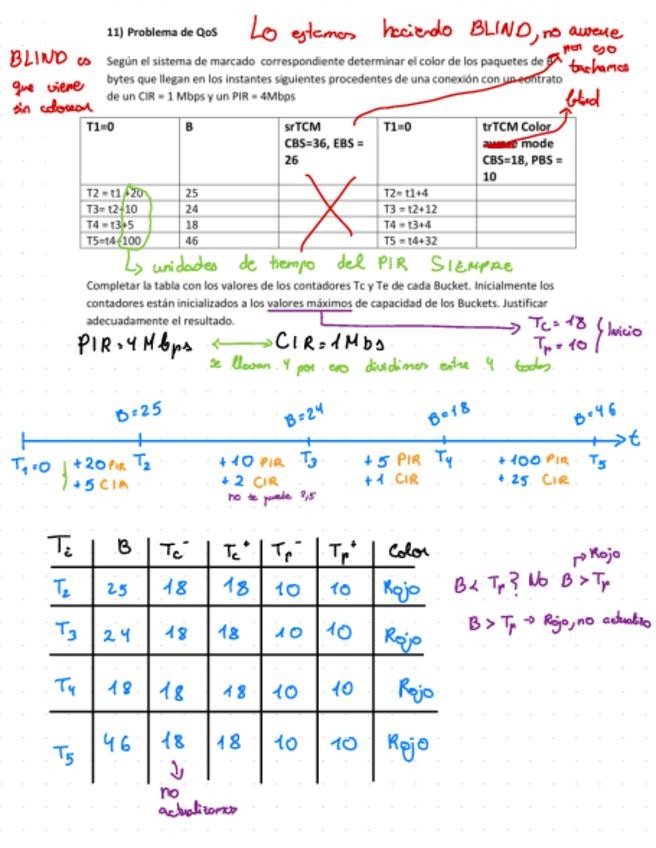 11) Problema de QoS
Lo estamos haciendo BLIND, no aware
por eso
tachamos
BLIND es
que viene
sin colorear
Según el sistema de marcado correspondiente determinar el color de los paquetes de
bytes que llegan en los instantes siguientes procedentes de una conexión con un contrato
de un CIR = 1 Mbps y un PIR = 4Mbps
blind
T1=0 B srTCM CBS=36, EBS = 26 T1=0 trTCM Color aware mode CBS=18, PBS = 10
T2 = t1+20 25 T2= t1+4
T3= t2+10 24 T3 = t2+12
T4 = t3+5 18 T4 = t3+4
T5=t4+100 46 T5 = t4+32
unidades de tiempo del PIR SIEMPRE
Completar la tabla con los valores de los contadores Tc y Te de cada Bucket. Inicialmente los
contadores están inicializados a los valores máximos de capacidad de los Buckets. Justificar
adecuadamente el resultado.
Tc = 18
Tp = 10
Inicio
PIR = 4 Mbps ↔ CIR = 1 Mbs
se llevan 4 por eso dividimos entre 4 todos
B=25 B=24 B=18 B=46
T1=0 T2 T3 T4 T5 t
+20 PIR +10 PIR +5 PIR +100 PIR
+5 CIR +2 CIR +1 CIR +25 CIR
no se puede 2,5
Ti B Tc⁻ Tc⁺ Tp⁻ Tp⁺ Color
T2 25 18 18 10 10 Rojo
T3 24 18 18 10 10 Rojo
T4 18 18 18 10 10 Rojo
T5 46 18 18 10 10 Rojo
no
actualizamos
Rojo
B < Tp? No B > Tp
B > Tp → Rojo, no actualizo